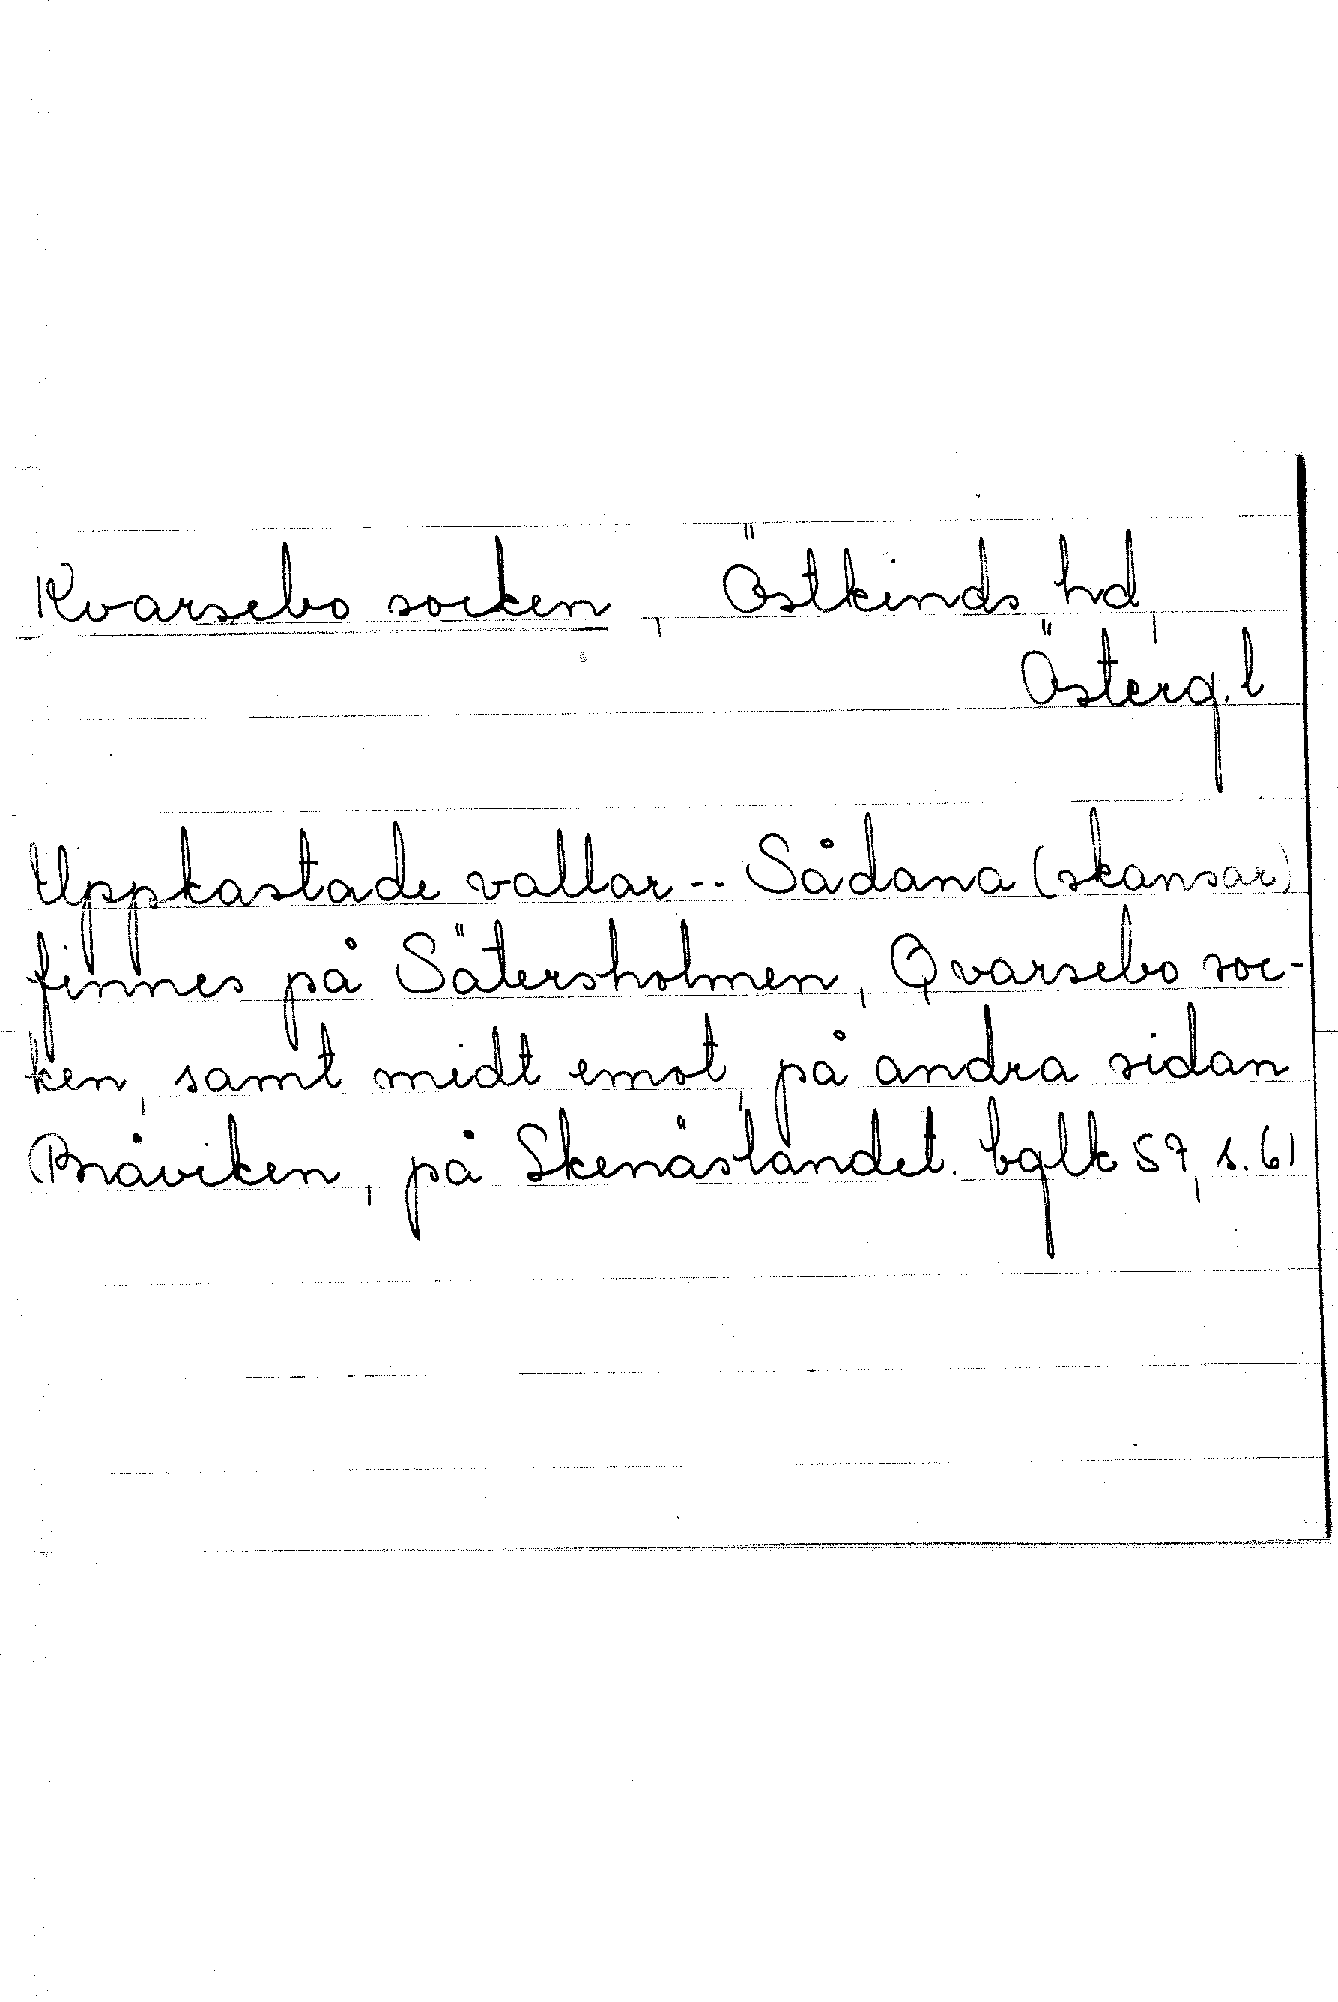 Kvarsebo socken, Östkinds hd,
Österg. l
Uppkastade vallar -- Sådana (skansar)
finnes på Sätersholmen, Qvarsebo soc-
ken, samt midt emot, på andra sidan
Bråviken, på Skenäslandet. bglk 57, s. 61